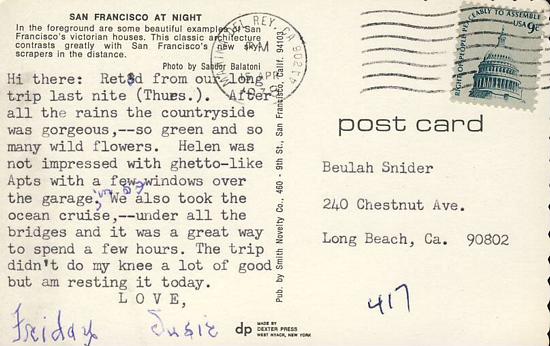 SAN FRANCISCO AT NIGHT
In the foreground are some beautiful examples of San
Francisco's victorian houses. This classic architecture
contrasts greatly with San Francisco's new sky-
scrapers in the distance.
Photo by Sabdor Balatoni
Hi there: Retd from our long
trip last nite (Thurs.). After
all the rains the countryside
was gorgeous,--so green and so
many wild flowers. Helen was
not impressed with ghetto-like
Apts with a few windows over
the garage. We also took the
ocean cruise,--under all the
bridges and it was a great way
to spend a few hours. The trip
didn't do my knee a lot of good
but am resting it today.
LOVE,
Friday Susie
Pub. by Smith Novelty Co. 460 - 9th St., San Francisco, Calif. 94103
dp MADE BY
DEXTER PRESS
WEST NYACK, NEW YORK
REY, CA 902
PM
APR
RIGHT OF PEOPLE PEACEABLY TO ASSEMBLE
USA 9c
post card
Beulah Snider
240 Chestnut Ave.
Long Beach, Ca. 90802
417